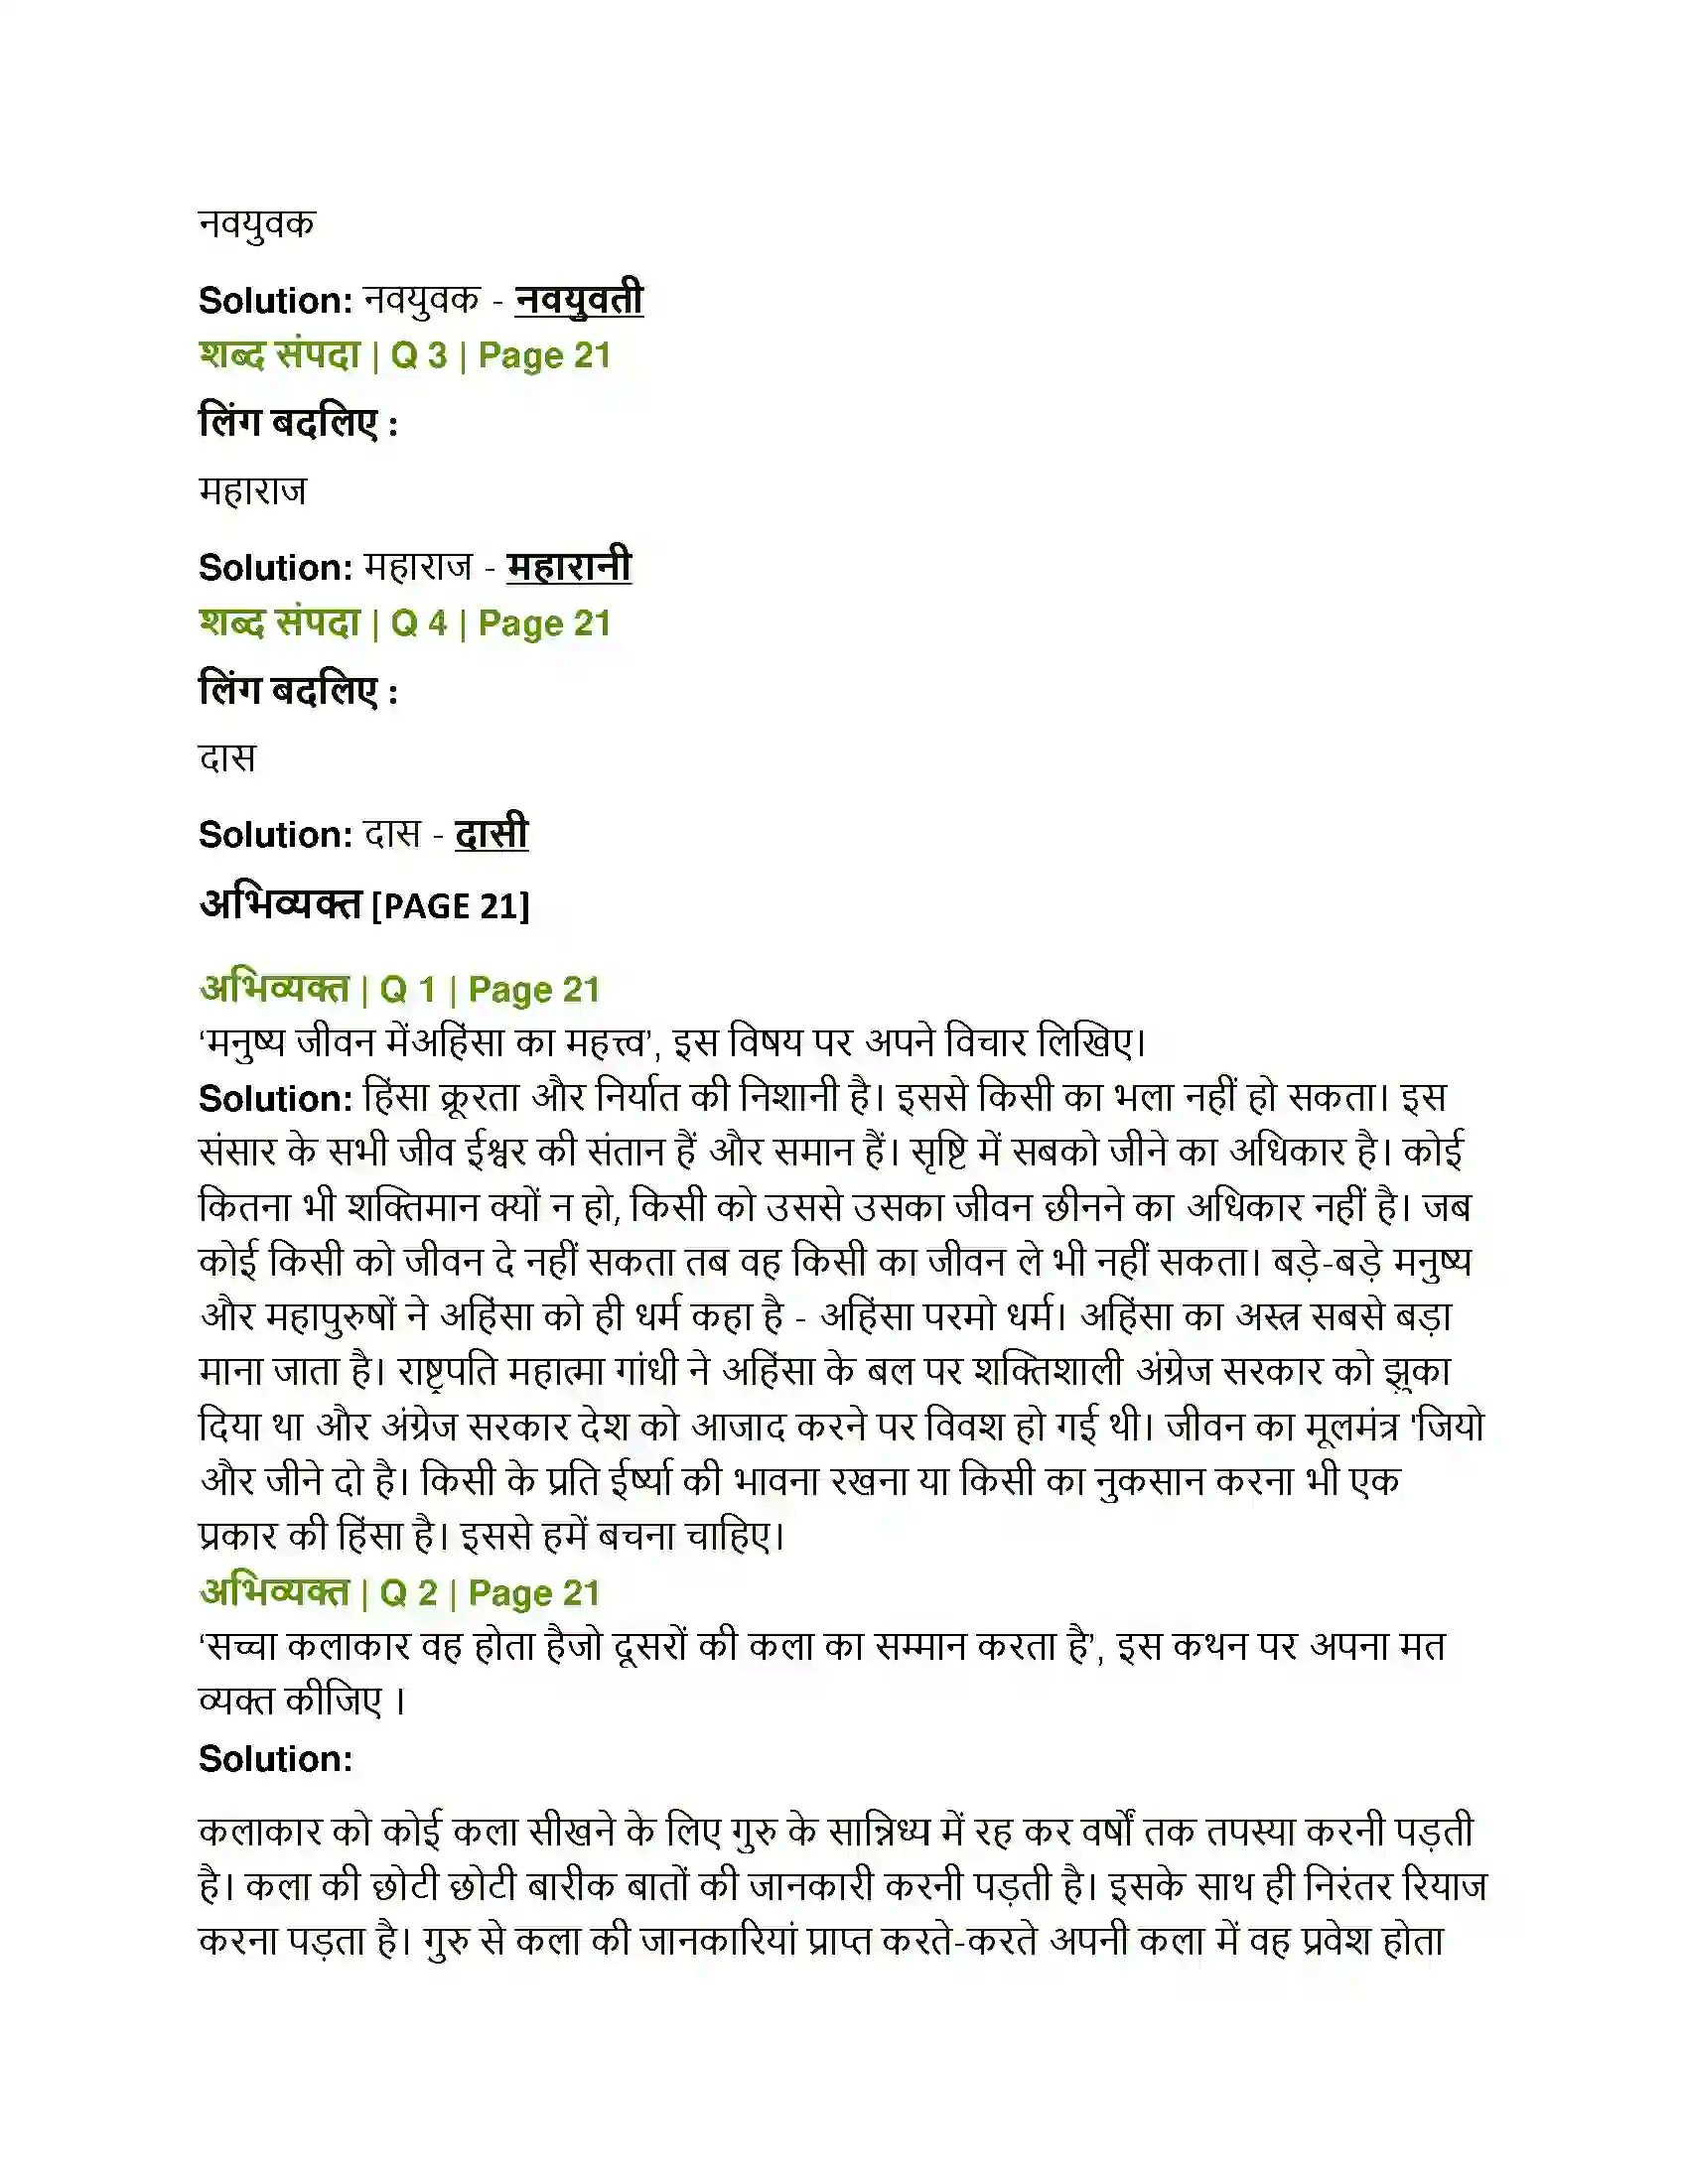 नवयुवक
Solution: नवयुवक - नवयुवती
शब्द संपदा | Q 3 | Page 21
लिंग बदलिए :
महाराज
Solution: महाराज - महारानी
शब्द संपदा | Q 4 | Page 21
लिंग बदलिए :
दास
Solution: दास - दासी
अभिव्यक्त [PAGE 21]
अभिव्यक्त | Q 1 | Page 21
‘मनुष्य जीवन मेंअहिंसा का महत्त्व’, इस विषय पर अपने विचार लिखिए।
Solution: हिंसा क्रूरता और निर्यात की निशानी है। इससे किसी का भला नहीं हो सकता। इस
संसार के सभी जीव ईश्वर की संतान हैं और समान हैं। सृष्टि में सबको जीने का अधिकार है। कोई
कितना भी शक्तिमान क्यों न हो, किसी को उससे उसका जीवन छीनने का अधिकार नहीं है। जब
कोई किसी को जीवन दे नहीं सकता तब वह किसी का जीवन ले भी नहीं सकता। बड़े-बड़े मनुष्य
और महापुरुषों ने अहिंसा को ही धर्म कहा है - अहिंसा परमो धर्म। अहिंसा का अस्त्र सबसे बड़ा
माना जाता है। राष्ट्रपति महात्मा गांधी ने अहिंसा के बल पर शक्तिशाली अंग्रेज सरकार को झुका
दिया था और अंग्रेज सरकार देश को आजाद करने पर विवश हो गई थी। जीवन का मूलमंत्र 'जियो
और जीने दो है। किसी के प्रति ईर्ष्या की भावना रखना या किसी का नुकसान करना भी एक
प्रकार की हिंसा है। इससे हमें बचना चाहिए।
अभिव्यक्त | Q 2 | Page 21
‘सच्चा कलाकार वह होता हैजो दूसरों की कला का सम्मान करता है’, इस कथन पर अपना मत
व्यक्त कीजिए ।
Solution:
कलाकार को कोई कला सीखने के लिए गुरु के सान्निध्य में रह कर वर्षों तक तपस्या करनी पड़ती
है। कला की छोटी छोटी बारीक बातों की जानकारी करनी पड़ती है। इसके साथ ही निरंतर रियाज
करना पड़ता है। गुरु से कला की जानकारियां प्राप्त करते-करते अपनी कला में वह प्रवेश होता